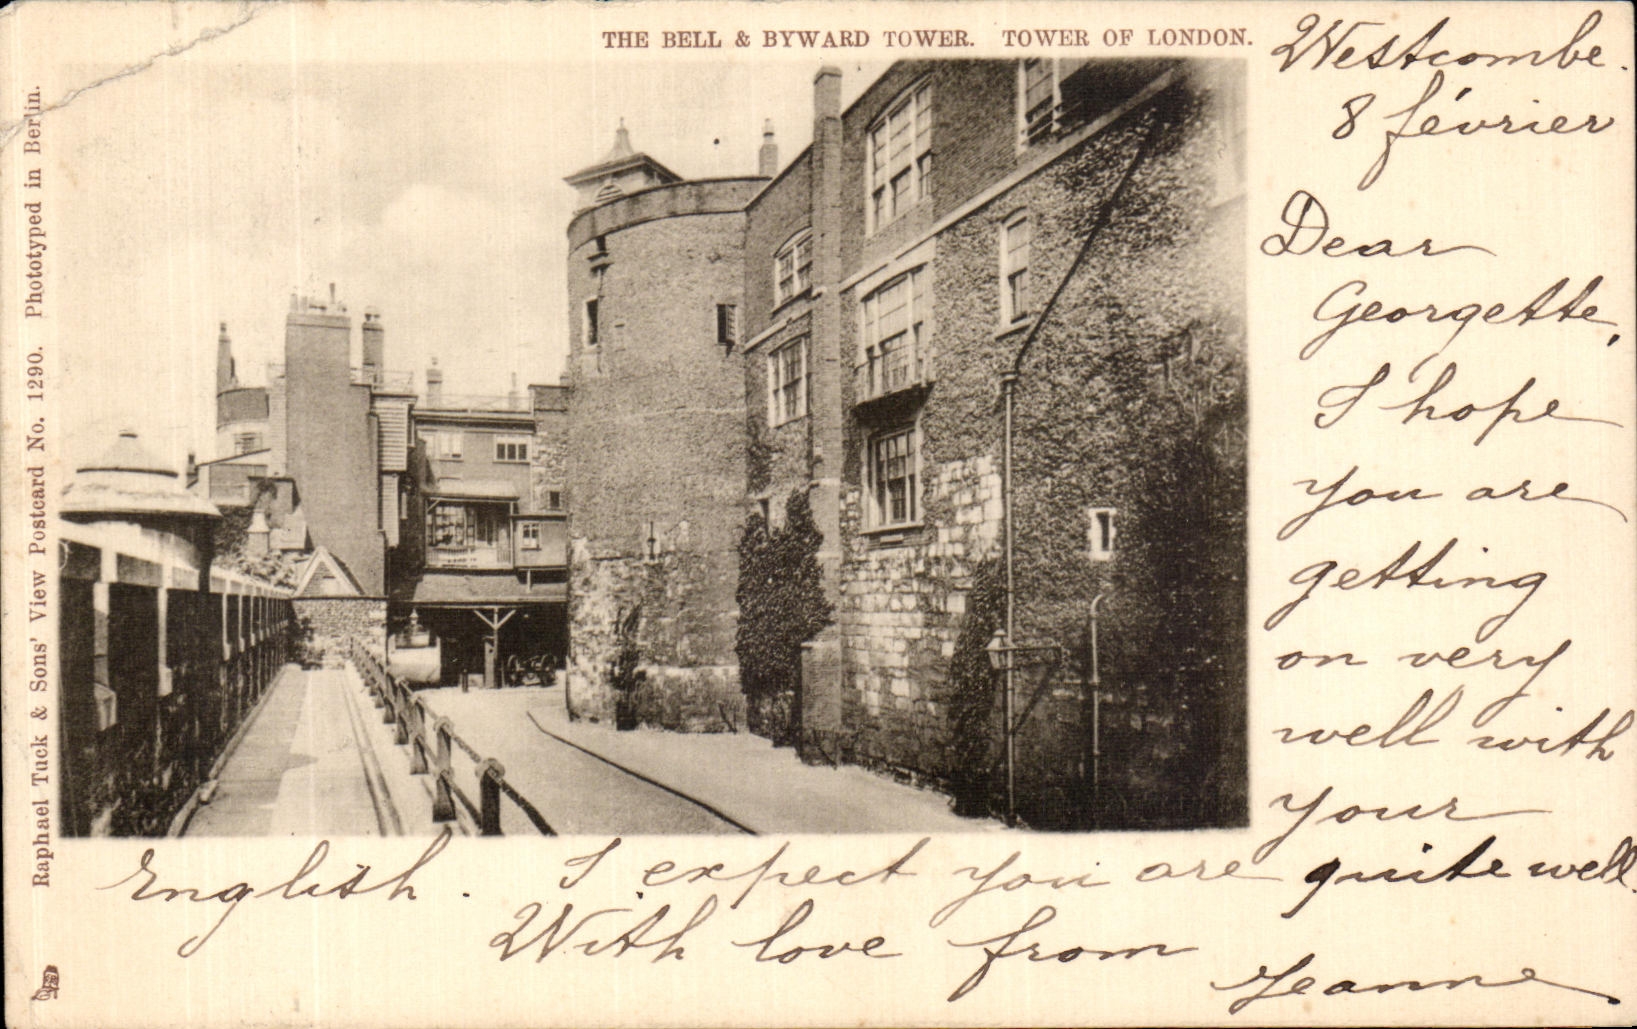 THE BELL & BYWARD TOWER. TOWER OF LONDON.
Raphael Tuck & Sons' View Postcard No. 1290. Phototyped in Berlin.
Westcombe.
8 février
Dear
Georgette,
I hope
you are
getting
on very
well with
your
English. I expect you are quite well.
With love from
Jeanne